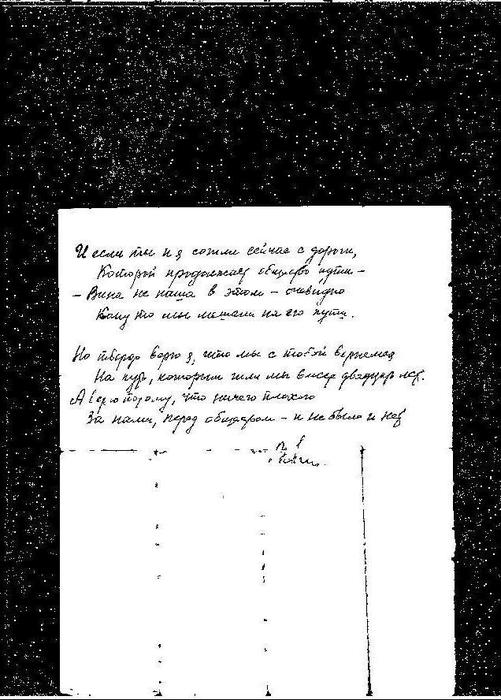 И если ты и я сошли сейчас с дороги,
Которой продолжает общество идти –
– Вина не наша в этом – очевидно
Кому то мы мешали на его пути.
Но твердо верю я, что мы с тобой вернемся
На путь, которым шли мы вместе двадцать лет.
А верю потому, что ничего плохого
За нами, перед обществом – и не было и нет